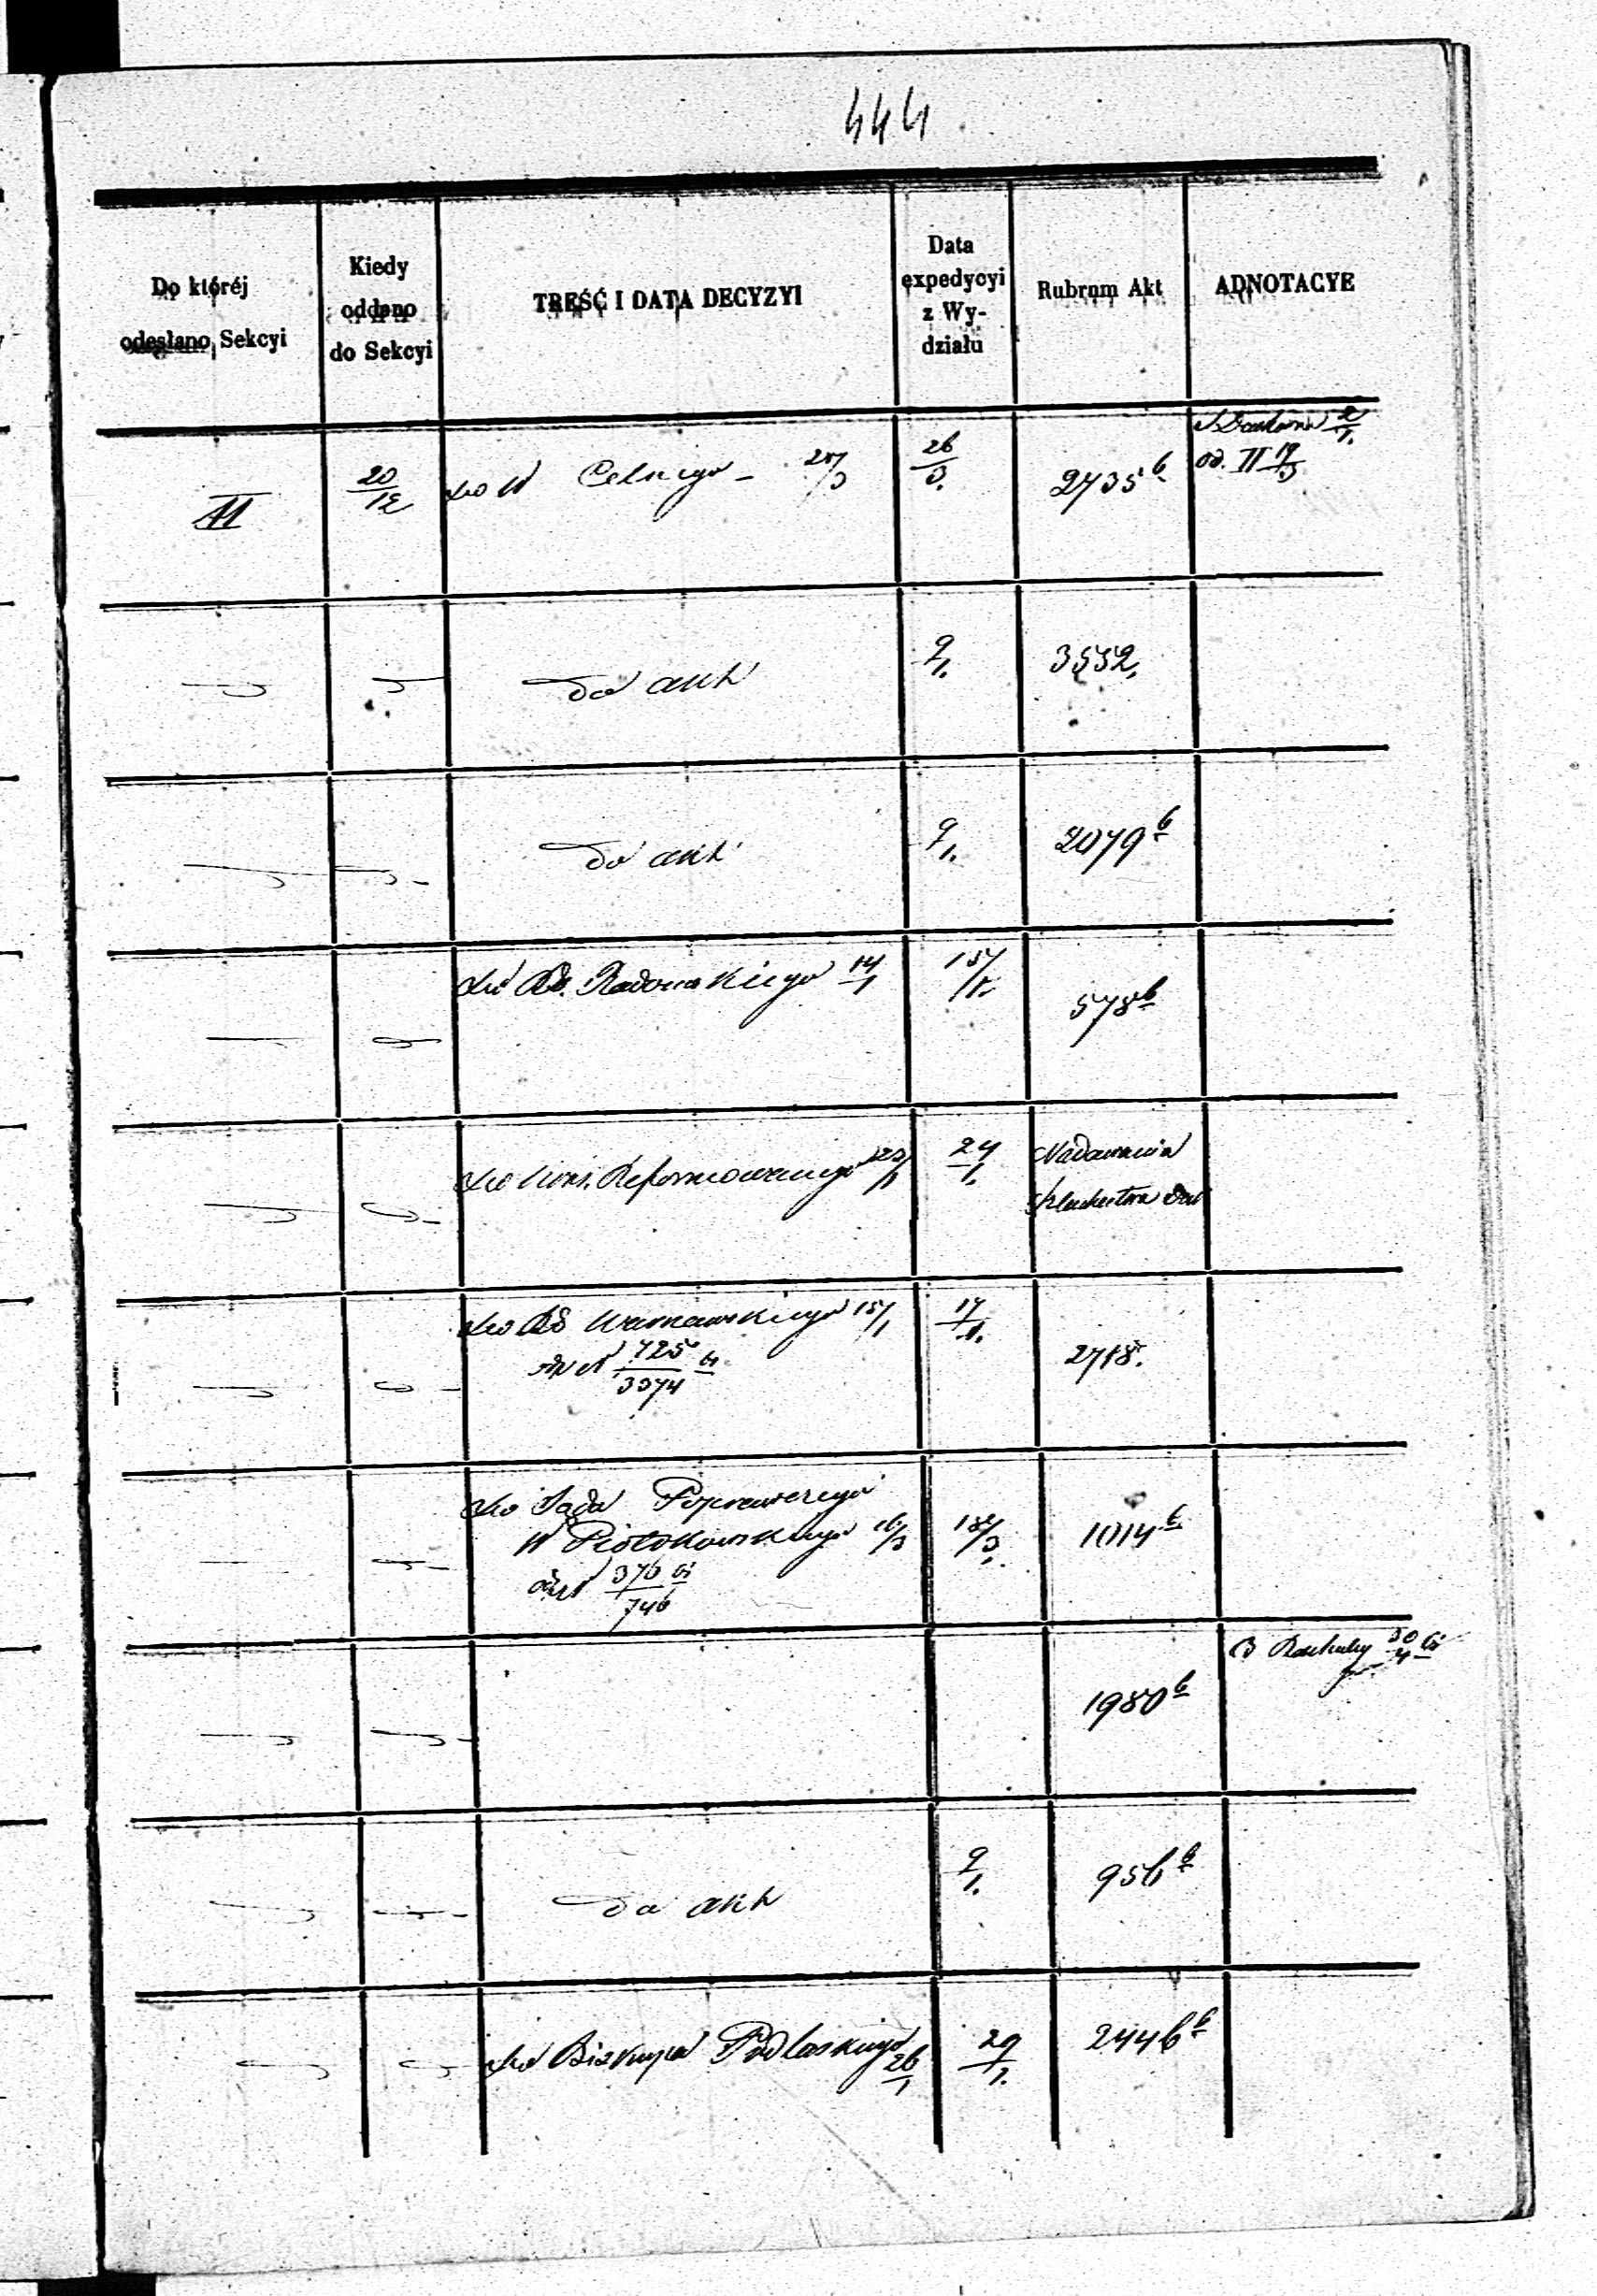 444
Do któréj
odesłano Sekcyi
Kiedy
oddano
do Sekcyi
TREŚĆ I DATA DECYZYI
Data
expedycyi
z Wy-
działu
Rubrum Akt
ADNOTACYE
II
20/12
Do W Celnego - 25/3
26/3.
2735 b
od. II 19/3
do akt
9/1.
3552.
do akt
9/1.
2079 b
Do Rd. Radomskiego 14/1
15/1.
578 b
Do Kons. Reformowanego 23/1
24/1.
Nadawania
Szlachectwa
Do Rd Warszawskiego 15/1
17/1.
725
3374
2718.
Do Sądu Poprawczego
W Piotrkowskiego 16/3
18/3.
1014 b
376
746
1980 b
30/4
do akt
9/1.
956 b
Do Biskupa Podlaskiego
26/1
29/1.
2446 b